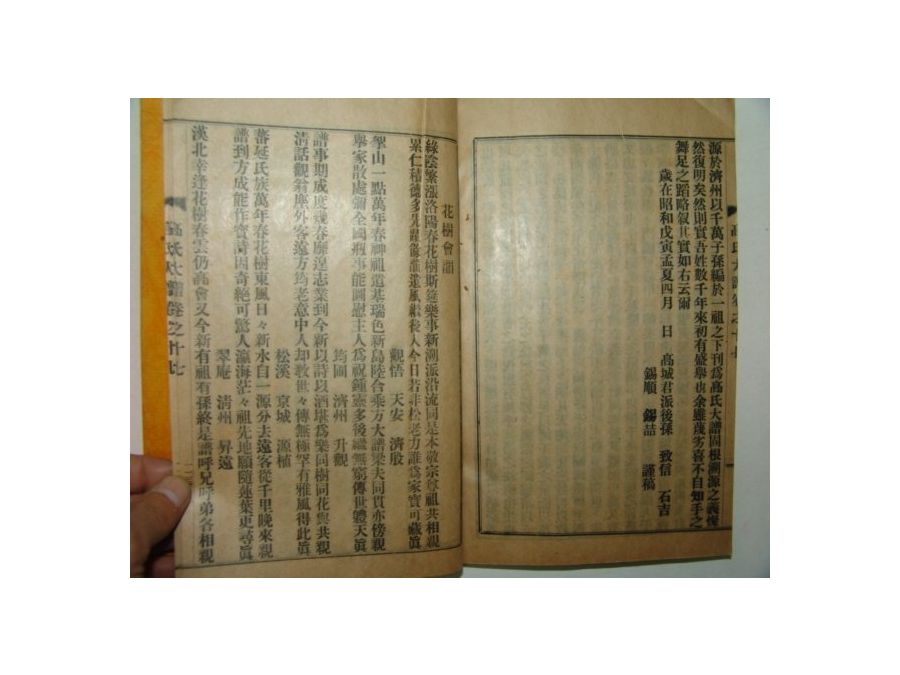 源於濟州以千萬子孫編於一祖之下刊爲髙氏大譜固根溯源之義煥
然復明矣然則實吾姓數千年來初有盛擧也余雖蔑劣喜不自知手之
舞足之蹈略叙其實如右云爾
歲在昭和戊寅孟夏四月　日　髙城君派後孫　致信　石吉
錫順　錫喆　謹稿
花樹會韻
綠陰繁漲洛陽春花樹斯筵樂事新溯派沿流同是本敬宗尊祖共相親
累仁積德多先蹟遺風繼後人今日若非松老力誰爲家寶可藏眞
觀悟　天安　濟殷
山一點萬年春神祖遺基瑞色新島陸合乘方大譜梁夫同貫亦傍親
擧家散處彌全國剏事能圖慰主人爲祝鍾靈多後繼無窮傳世體天眞
筠圃　濟州　升觀
譜事期成度幾春靡遑志業到今新以詩以酒堪爲樂同樹同花與共親
淸話觀翁塵外客遠方筠老意中人却敎世々傳無極罕有雅風得此眞
松溪　京城　源植
蕃延氏族萬年春花樹東風日々新水自一源分去遠客從千里晚來親
譜到方成能作寶詩因奇絶可驚人瀛海茫々祖先地願隨蓮葉更尋眞
翠庵　淸州　昇遠
漢北幸逢花樹春雲仍高會又今新有祖有孫終是譜呼兄呼弟各相親
髙氏大譜卷之十七